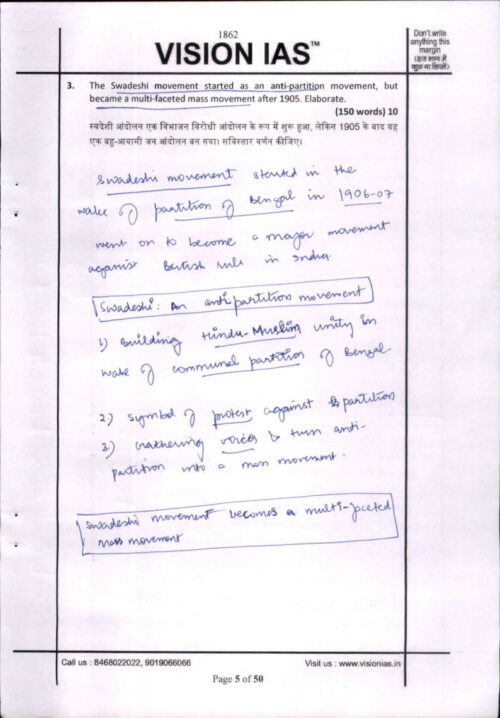 1862
VISION IAS™
Don't write
anything this
margin
(इस भाग में
कुछ ना लिखें)
3. The Swadeshi movement started as an anti-partition movement, but
became a multi-faceted mass movement after 1905. Elaborate.
(150 words) 10
स्वदेशी आंदोलन एक विभाजन विरोधी आंदोलन के रूप में शुरू हुआ, लेकिन 1905 के बाद यह
एक बहु-आयामी जन आंदोलन बन गया। सविस्तार वर्णन कीजिए।
Swadeshi movement started in the
wake of partition of Bengal in 1906-07
went on to become a major movement
against British rule in India.
Swadeshi: An anti partition movement
1) Building Hindu-Muslim unity in
wake of communal partition of Bengal
2.) Symbol of protest against partition
3.) Gathering voices & turn anti-
partition into a mass movement.
Swadeshi movement becomes a multi-faceted
mass movement
Call us : 8468022022, 9019066066
Visit us : www.visionias.in
Page 5 of 50